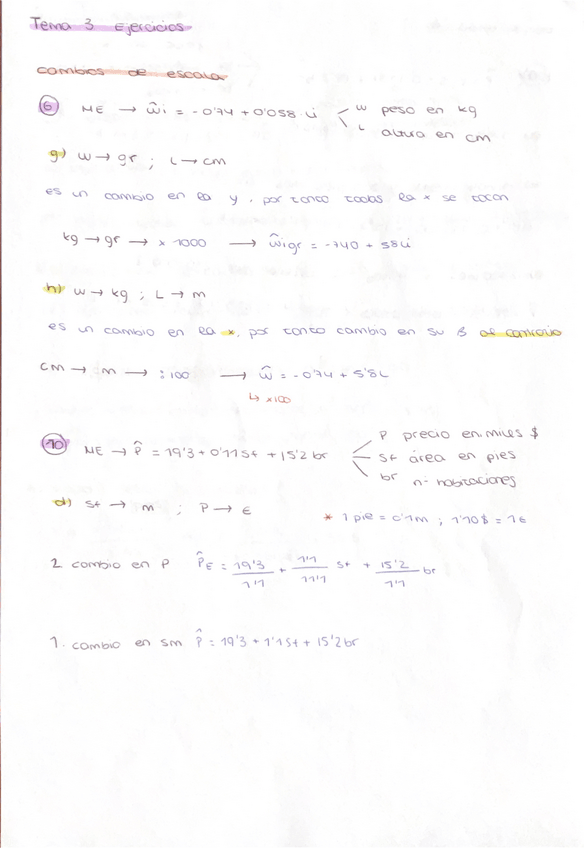 Tema 3 Ejercicios
cambios de escala
6 ME → ŵi = -0'74 + 0'058 Li
w peso en kg
L altura en cm
g) w → gr ; L → cm
es un cambio en la y, por tanto todas la x se tocan
kg → gr → x 1000 → ŵigr = -740 + 58Li
h) w → kg ; L → m
es un cambio en la x, por tanto cambio en su β al contrario
cm → m → :100 → ŵ = -0'74 + 5'8L
↳ x100
10 ME → P̂ = 19'3 + 0'11 St + 15'2 br
P precio en miles $
St área en pies
br nº habitaciones
d) St → m ; P → €
* 1 pie = 0'1m ; 1'10$ = 1€
2 cambio en P P̂€ = 19'3/1'1 + 1'1/1'1 St + 15'2/1'1 br
1. cambio en sm P̂ = 19'3 + 1'1St + 15'2br